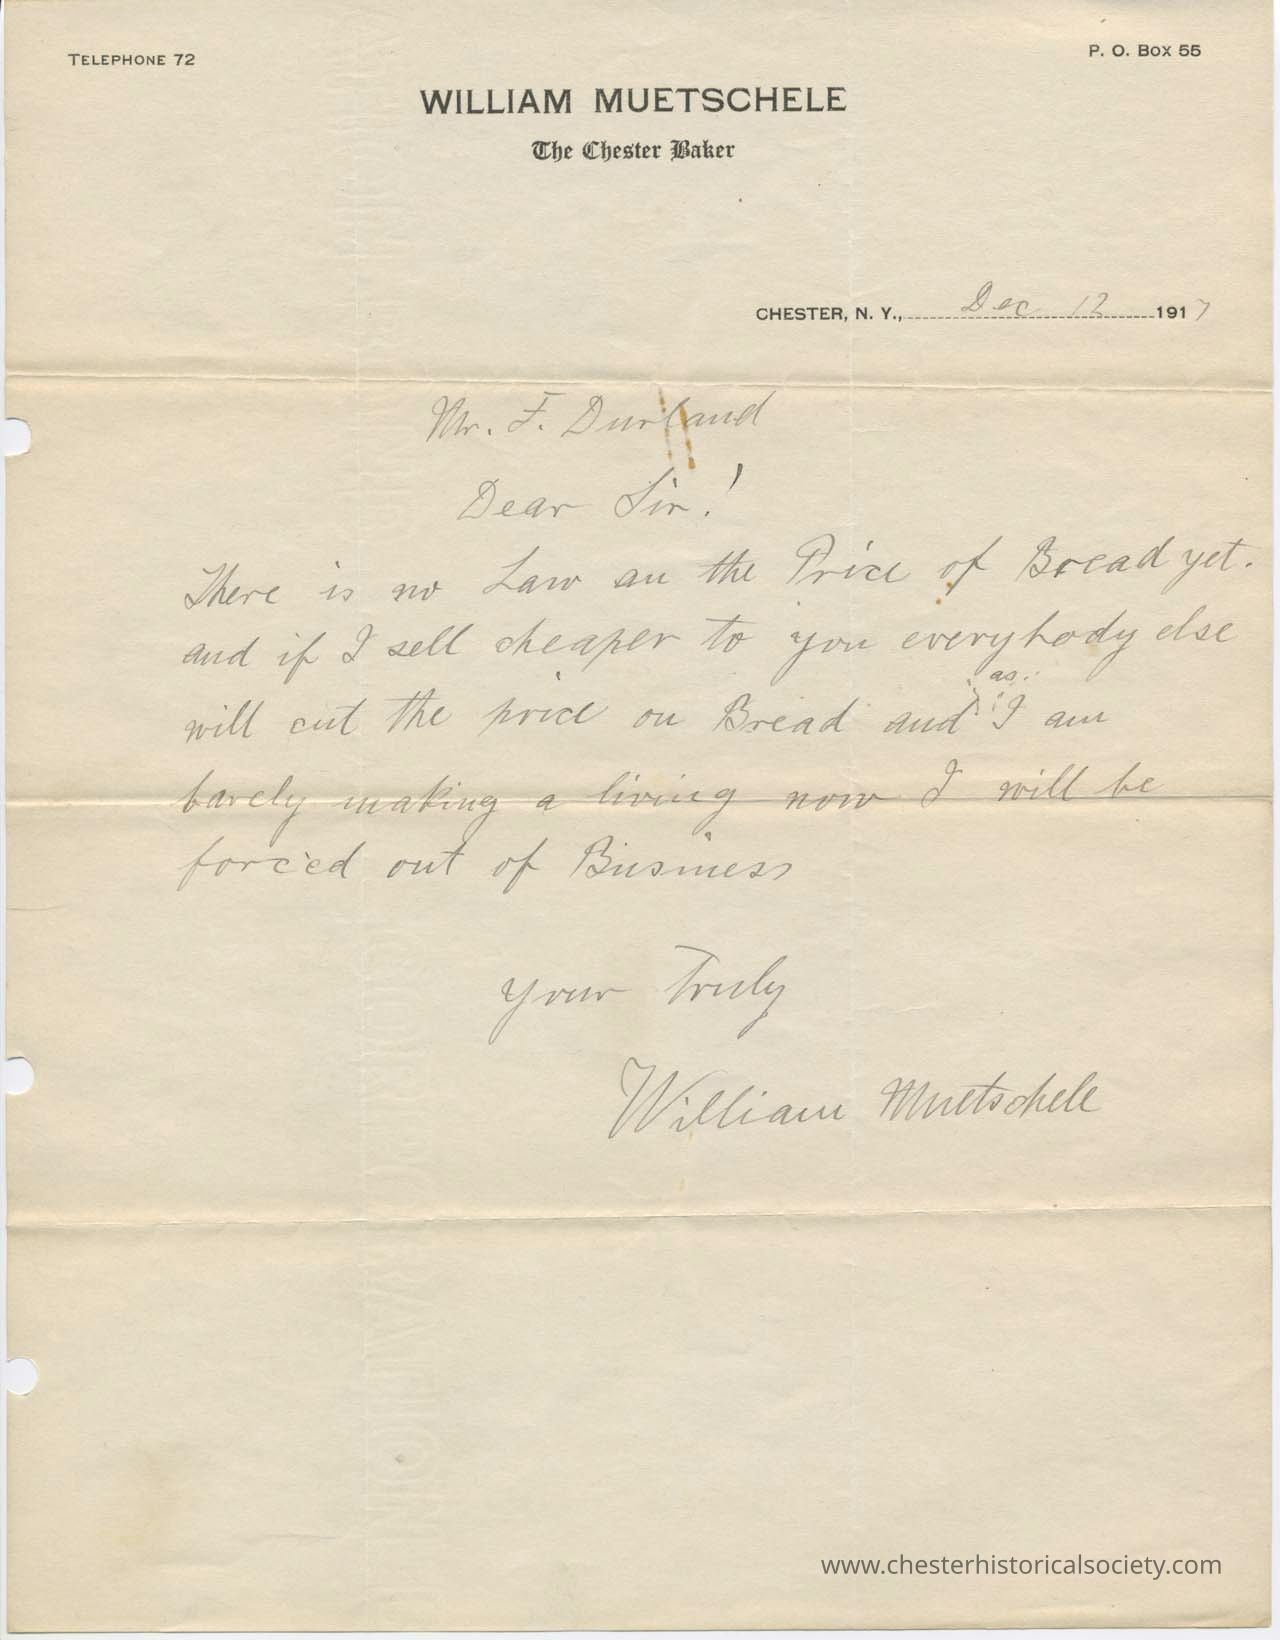 TELEPHONE 72
P. O. BOX 55
WILLIAM MUETSCHELE
The Chester Baker
CHESTER, N. Y., Dec 12 1917
Mr. F. Durland
Dear Sir!
There is no Law on the Price of Bread yet.
and if I sell cheaper to you everybody else
will cut the price on Bread and as I am
barely making a living now I will be
forced out of Business
Your Truly
William Muetschele
www.chesterhistoricalsociety.com